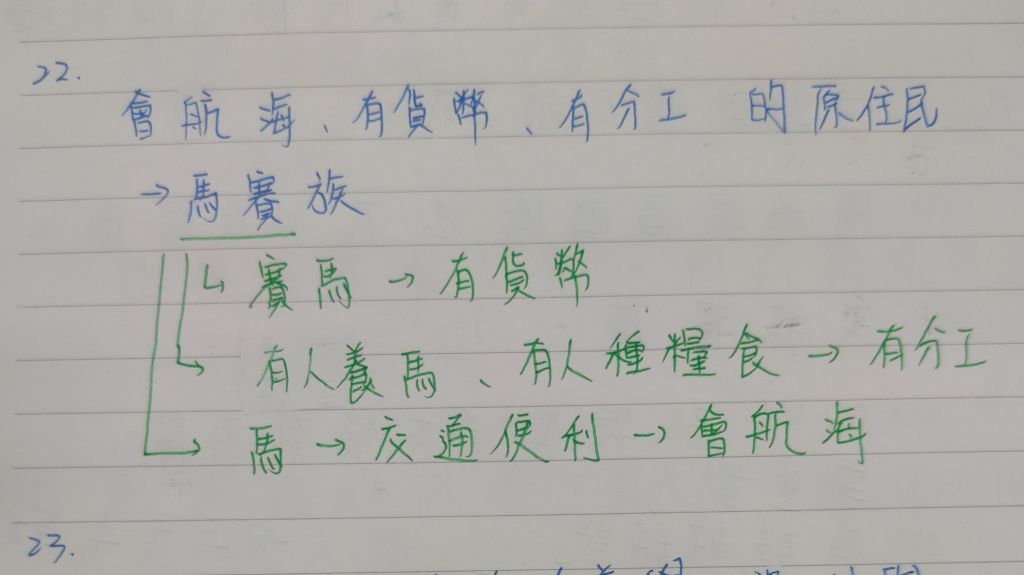 22.
會航海、有貨幣、有分工 的原住民
→馬賽族
↳ 賽馬→有貨幣
→ 有人養馬、有人種糧食→有分工
→ 馬→交通便利→會航海
23.